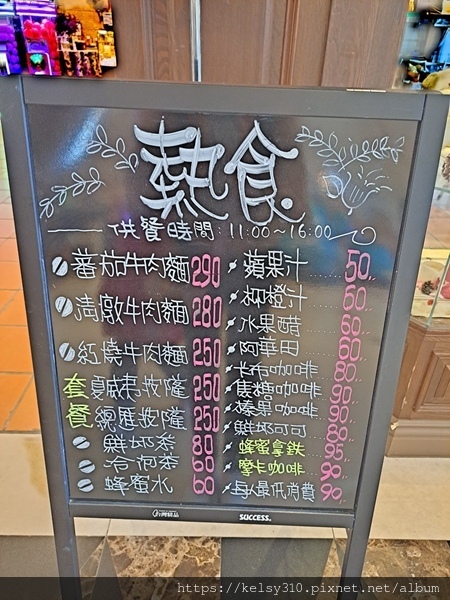 熱食
供餐時間:11:00~16:00
蕃茄牛肉麵 290
清燉牛肉麵 280
紅燒牛肉麵 250
套 夏威夷披薩 250
餐 總匯披薩 250
鮮奶茶 80
冷泡茶 60
蜂蜜水 60
蘋果汁 50
柳橙汁 60
水果醋 60
阿華田 60
卡布咖啡 80
焦糖咖啡 90
榛果咖啡 90
鮮奶可可 80
蜂蜜拿鐵 95
摩卡咖啡 90
每人最低消費 90
SUCCESS.
https://kelsy310.pixnet.net/album